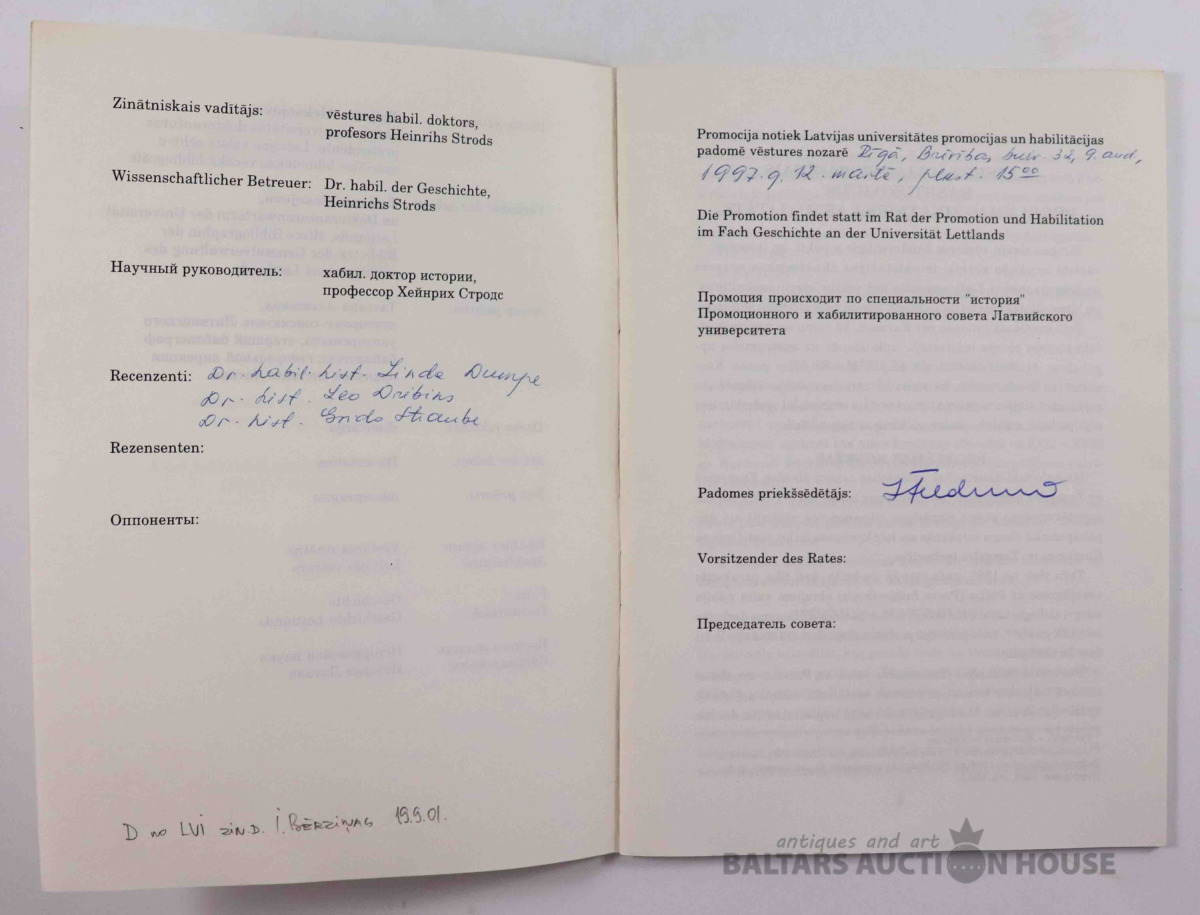 Zinātniskais vadītājs: vēstures habil. doktors,
profesors Heinrihs Strods
Wissenschaftlicher Betreuer: Dr. habil. der Geschichte,
Heinrichs Strods
Научный руководитель: хабил. доктор истории,
профессор Хейнрих Стродс
Recenzenti: Dr. habil. hist. Linda Dumpe
Dr. hist. Leo Dribins
Dr. hist. Straube
Rezensenten:
Оппоненты:
D no LVI zin.d. I. Bērziņas 19.9.01.
Promocija notiek Latvijas universitātes promocijas un habilitācijas
padomē vēstures nozarē Rīgā, Brīvības bulv. 32, 9. aud,
1997.g. 12. martā, plkst. 15 00
Die Promotion findet statt im Rat der Promotion und Habilitation
im Fach Geschichte an der Universität Lettlands
Промоция происходит по специальности "история"
Промоционного и хабилитированного совета Латвийского
университета
Padomes priekšsēdētājs:
Vorsitzender des Rates:
Председатель совета:
antiques and art
BALTARS AUCTION HOUSE